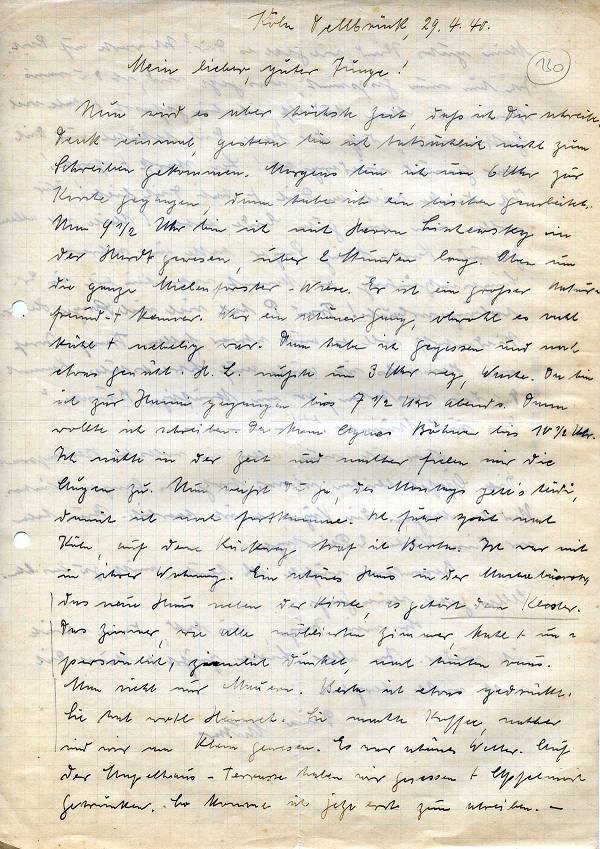 Köln Dellbrück, 29.4.40.
130
Mein lieber, guter Junge!
Nun wird es aber höchste Zeit, daß ich Dir schreibe.
Denk einmal, gestern bin ich tatsächlich nicht zum
Schreiben gekommen. Morgens bin ich um 6 Uhr zur
Kirche gegangen, dann habe ich ein bischen gearbeitet.
Um 9 1/2 Uhr bin ich mit Herrn in
der Hardt gewesen, über 2 Stunden lang. Oben um
die ganze Wiese. Er ist ein großer Natur-
freund + Kenner. War ein schöner Gang, obwohl es noch
kühl + nebelig war. Dann habe ich gegessen und noch
etwas genäht. H. L. mußte um 3 Uhr weg, Wache. Da bin
ich zur Hanna gegangen bis 7 1/2 Uhr abends. Dann
wollte ich schreiben. Da kam Agnes Bühner bis 10 1/2 Uhr.
Ich nähte in der Zeit und nachher fielen mir die
Augen zu. Nun weißt Du ja, des Montags geht's
damit ich noch fortkomme. Ich fuhr spät nach
Köln, auf dem Rückweg traf ich Berta. Ich war mit
in ihrer Wohnung. Ein schönes Haus in der
das neue Haus neben der Kirche, es gehört dem Kloster.
Das Zimmer, wie alle möblierten Zimmer, kahl + un=
persönlich, ziemlich dunkel, nach hinten raus.
Man sieht nur Mauern. Berta ist etwas gedrückt.
Sie hat wohl Heimweh. Sie machte Kaffee, nachher
sind wir am Rhein gewesen. Es war schönes Wetter. Auf
der - Terrasse haben wir gesessen + Apfelmost
getrunken. So komme ich jetzt erst zum schreiben. –